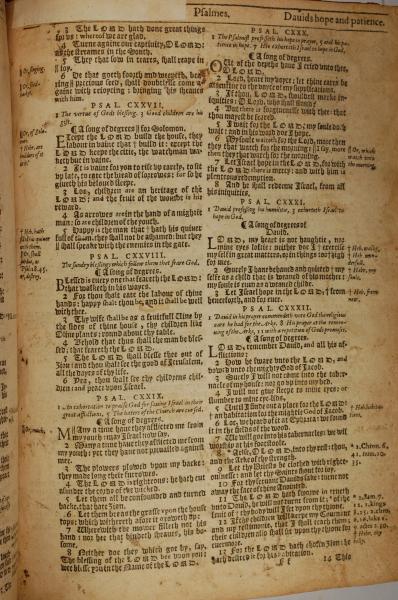 Psalmes.
Dauids hope and patience.
3 The LORD hath done great things
for vs: whereof we are glad.
4 Turne againe our captiuity, O LORD:
as the streames in the South.
5 They that sow in teares, shall reape in
ioy.
6 He that goeth forth and weepeth, bearing
precious seed, shall doubtlesse come againe
with reioycing: bringing his sheaues
with him.
PSAL. CXXVII.
1 The vertue of Gods blessing. 3 Good children are his
gift.
¶ A song of degrees for Solomon.
Except the LORD build the house, they
labour in vaine that build it: except the
LORD keepe the citie, the watchman waketh
but in vaine.
2 It is vaine for you to rise vp early, to sit
vp late, to eate the bread of sorrowes: for so he
giueth his beloued sleepe.
3 Loe, children are an heritage of the
LORD: and the fruit of the wombe is his
reward.
4 As arrowes are in the hand of a mighty
man: so are children of the youth.
5 Happy is the man that hath his quiuer
full of them, they shall not be ashamed: but they
shall speake with the enemies in the gate.
PSAL. CXXVIII.
The sundry blessings which follow them that feare God.
¶ A song of degrees.
Blessed is euery one that feareth the LORD:
that walketh in his wayes.
2 For thou shalt eate the labour of thine
hands: happy shalt thou be, and it shall be well
with thee.
3 Thy wife shall be as a fruitfull Uine by
the sides of thine house, thy children like
Oliue plants: round about thy table.
4 Behold that thus shall the man be blessed:
that feareth the LORD.
5 The LORD shall blesse thee out of
Sion: and thou shalt see the good of Ierusalem,
all the dayes of thy life.
6 Yea, thou shalt see thy childrens children:
and peace vpon Israel.
PSAL. CXXIX.
¶ A song of degrees.
Many a time haue they afflicted me from
my youth: may Israel now say.
2 Many a time haue they afflicted me from
my youth: yet they haue not preuailed against
mee.
3 The plowers plowed vpon my backe:
they made long their furrowes.
4 The LORD is righteous: he hath cut
asunder the cords of the wicked.
5 Let them all be confounded and turned
backe, that hate Sion.
6 Let them be as the grasse vpon the house
tops: which withereth afore it groweth vp:
7 Wherewith the mower filleth not his
hand: nor he that bindeth sheaues, his bosome.
8 Neither doe they which goe by, say,
The blessing of the LORD bee vpon you:
wee blesse you in the Name of the LORD.
PSAL. CXXX.
¶ A song of degrees.
Out of the depths haue I cried vnto thee,
O LORD.
2 Lord, heare my voyce: let thine eares be
attentiue to the voyce of my supplications.
3 If thou, LORD, shouldest marke iniquities:
O Lord, who shall stand?
4 But there is forgiuenesse with thee: that
thou mayest be feared.
5 I wait for the LORD, my soule doth
wait: and in his word doe I hope.
6 My soule waiteth for the Lord, more then
they that watch for the morning: I say, more
then they that watch for the morning.
7 Let Israel hope in the LORD, for with
the LORD there is mercy: and with him is
plenteous redemption.
8 And he shall redeeme Israel, from all
his iniquities.
PSAL. CXXXI.
1 Dauid professing his humilitie, 3 exhorteth Israel to
hope in God.
¶ A song of degrees of
Dauid.
LORD, my heart is not haughtie, nor
mine eyes loftie: neither doe I exercise
my selfe in great matters, or in things too high
for mee.
2 Surely I haue behaued and quieted my
selfe as a child that is weaned of his mother:
my soule is euen as a weaned childe.
3 Let Israel hope in the LORD, from
henceforth, and for euer.
PSAL. CXXXII.
¶ A song of degrees.
LORD, remember Dauid, and all his afflictions:
2 How he sware vnto the LORD, and
vowed vnto the mighty God of Iacob.
3 Surely I will not come into the tabernacle
of my house: nor go vp into my bed.
4 I will not giue sleepe to mine eyes: or
slumber to mine eye-lids,
5 Untill I finde out a place for the LORD:
an habitation for the mighty God of Iacob.
6 Loe, we heard of it at Ephrata: we found
it in the fields of the wood.
7 We will goe into his tabernacles: we will
worship at his footstoole.
8 Arise, O LORD, into thy rest: thou,
and the Arke of thy strength.
9 Let thy Priests be clothed with righteousnesse:
and let thy Saints shout for ioy.
10 For thy seruant Dauids sake: turne not
away the face of thine Anointed.
11 The LORD hath sworne in trueth
vnto Dauid, he will not turne from it: of the
fruit of thy body will I set vpon thy throne.
12 If thy children will keepe my Couenant
and my testimonie, that I shall teach them:
their children also shall sit vpon thy throne for
euermore.
13 For the LORD hath chosen Sion: he
hath desired it for his habitation.
14 This